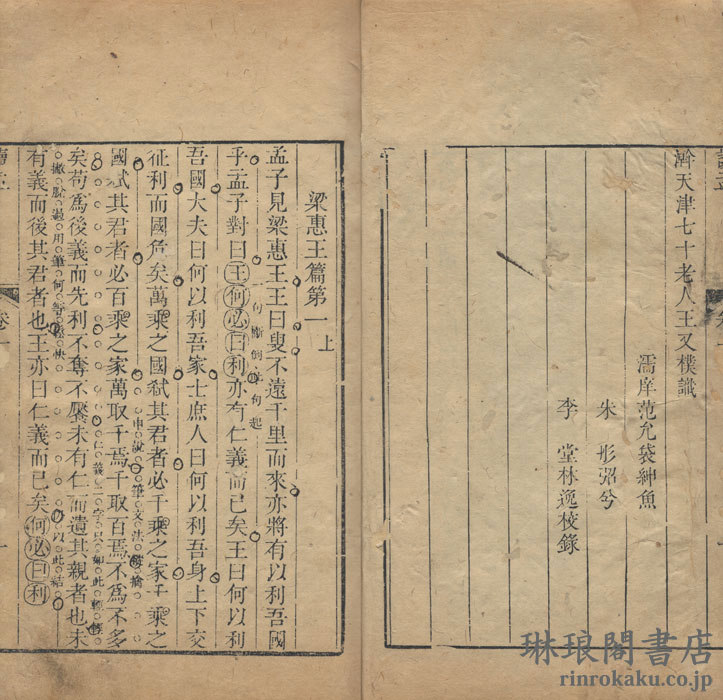 澣天津七十老人王又樸識
濡庠范允袋紳魚
朱 彤弨兮
李 堂林逸校錄
梁惠王篇第一上
孟子見梁惠王王曰叟不遠千里而來亦將有以利吾國
乎孟子對曰王何必曰利亦有仁義而已矣王曰何以利
一句斷倒
句起
吾國大夫曰何以利吾家士庶人曰何以利吾身上下交
征利而國危矣萬乘之國弒其君者必千乘之家千乘之
申說
筆文法
國弒其君者必百乘之家萬取千焉千取百焉不為不多
仁義二字只如此輕
矣苟為後義而先利不奪不饜未有仁而遺其親者也未
用筆何等
快
以此結
有義而後其君者也王亦曰仁義而已矣何必曰利
卷一
一
琳琅閣書店
rinrokaku.co.jp